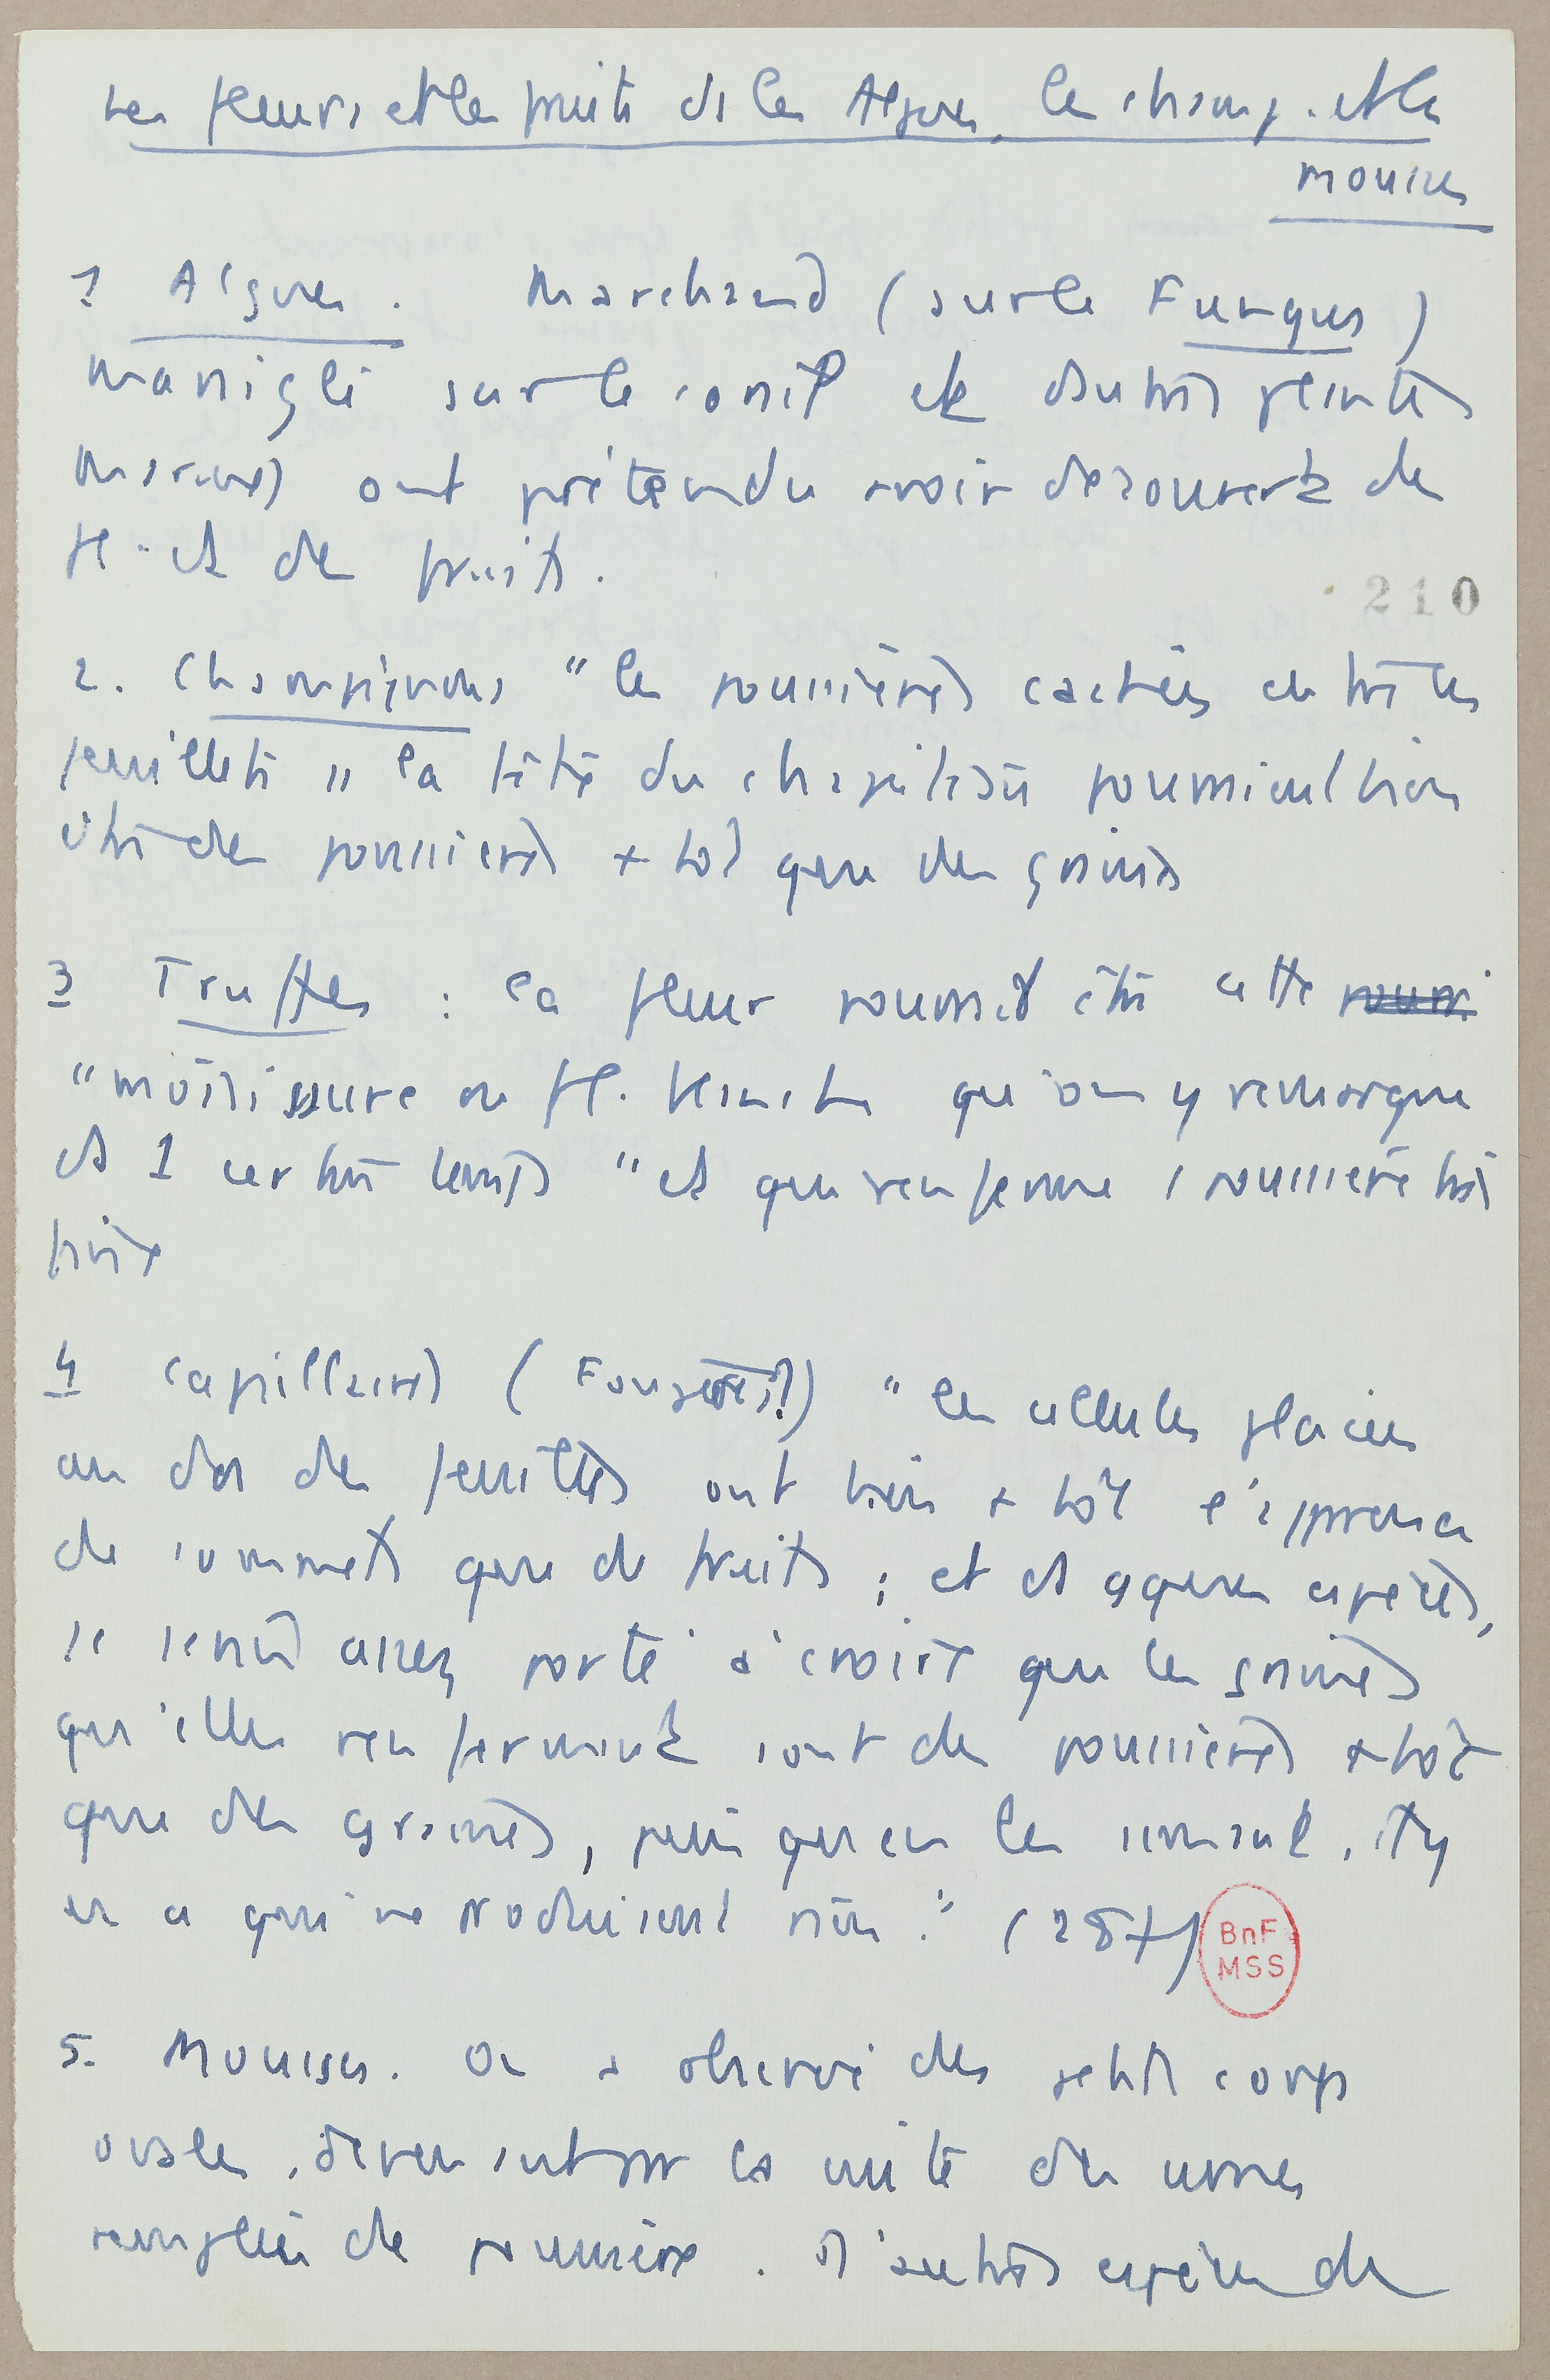 Les fleurs et les fruits ds les Algues, les champ. et les
mousses
1 Algues. Marchand (sur le Fungus)
Marsigli sur le corail et d'autres plantes
marines ont prétendu avoir découvert des
fl. et des fruits.
210
2. Champignons "les poussières cachées entre les
feuillets" la tête du chapiteau pourraient bien
être des poussières + tôt que des graines
3 Truffes : la fleur pourrait être cette pouss.
"moisissure ou fl. blanche qu'on y remarque
et 1 certain temps" et qui renferme 1 poussière très
fine
4 Capillaires (Fougères?) "les cellules placées
au dos des feuilles ont bien + tôt l'apparence
de sommets que de fruits ; et et qques espèces,
je serais assez porté à croire que les graines
qu'elles renferment sont des poussières + tôt
que des graines, puisqu'en les semant, il y
en a qui ne produisent rien." (287)
BnF
MSS
5. Mousses. On a observé des petits corps
ovales, devenant par la suite des urnes
remplies de poussière. D'autres espèces de